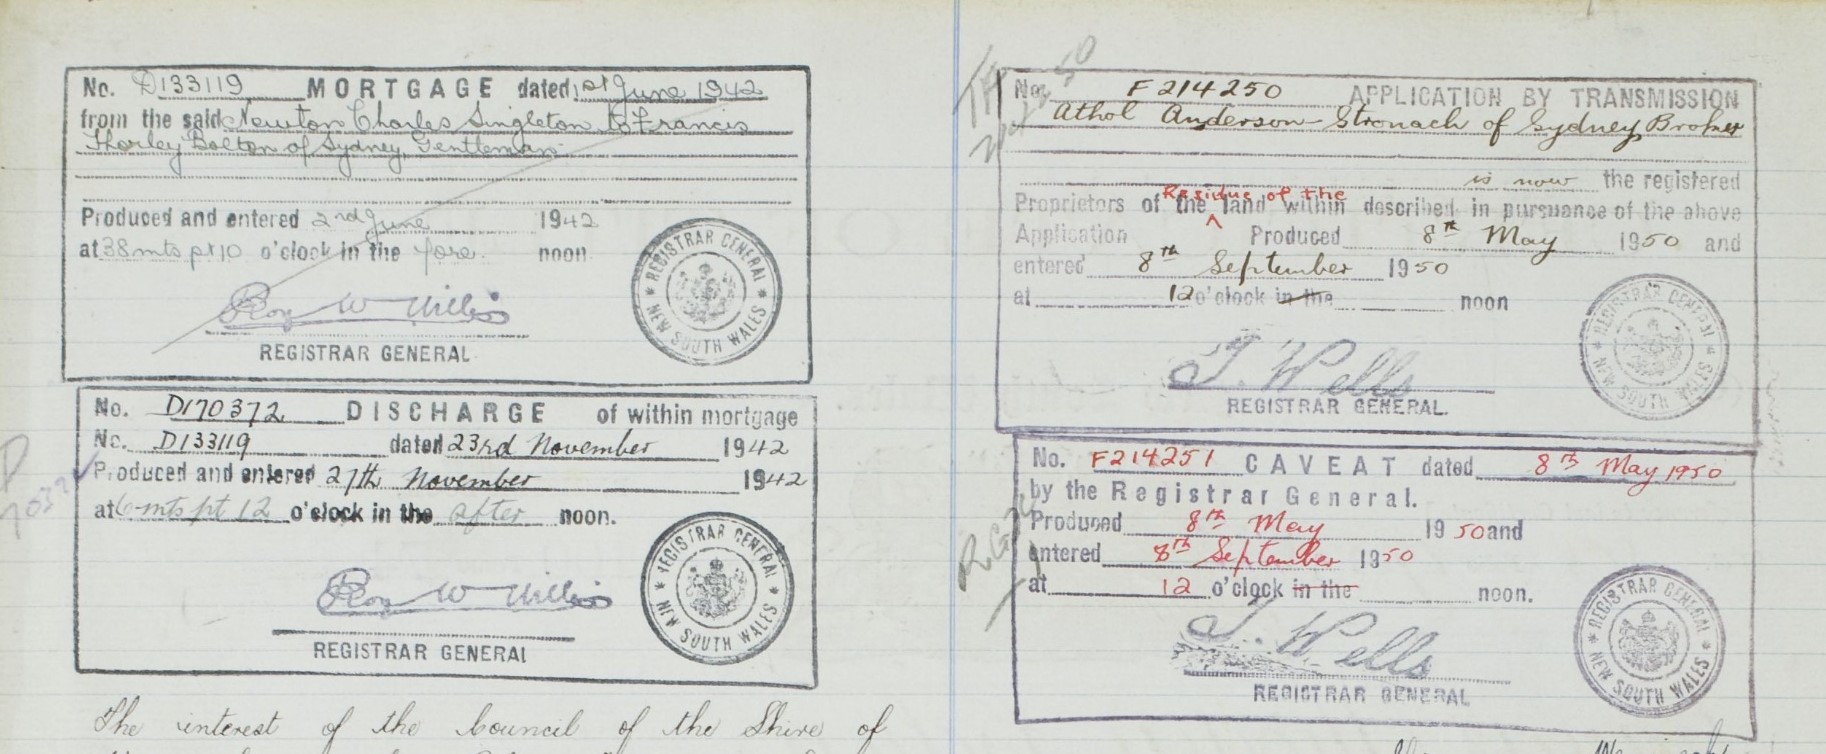 No. D133119 MORTGAGE dated 1st June 1942
from the said Newton Charles Singleton to Francis
Thorley Bolton of Sydney, Gentleman
Produced and entered 2nd June 1942
at 38 mts pt 10 o'clock in the fore noon
Roy W Willis
REGISTRAR GENERAL
REGISTRAR GENERAL
NEW SOUTH WALES
No. D170372 DISCHARGE of within mortgage
No. D133119 dated 23rd November 1942
Produced and entered 27th November 1942
at 6 mts pt 12 o'clock in the after noon.
Roy W Willis
REGISTRAR GENERAL
REGISTRAR GENERAL
NEW SOUTH WALES
The interest of the Council of the Shire of
No. F214250 APPLICATION BY TRANSMISSION
Athol Anderson Stronach of Sydney, Broker
is now the registered
Residue of the
Proprietors of the land within described in pursuance of the above
Application Produced 8th May 1950 and
entered 8th September 1950
at 12 o'clock in the noon
J. Wells
REGISTRAR GENERAL.
REGISTRAR GENERAL
NEW SOUTH WALES
No. F214251 CAVEAT dated 8th May 1950
by the Registrar General.
Produced 8th May 1950 and
entered 8th September 1950
at 12 o'clock in the noon.
J. Wells
REGISTRAR GENERAL
REGISTRAR GENERAL
NEW SOUTH WALES